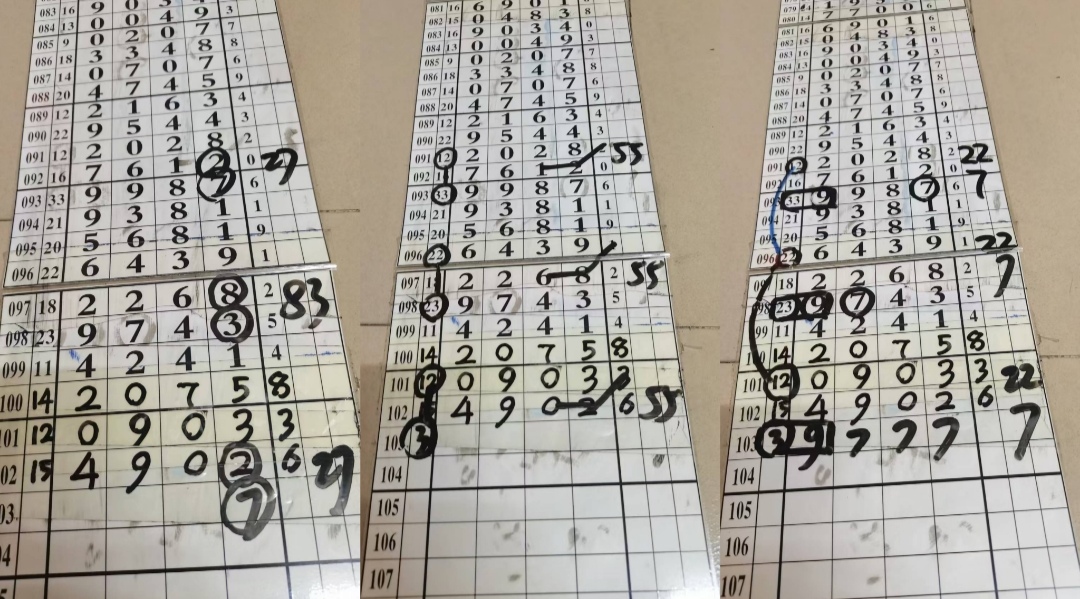 083 16 9 0
084 13 0 0 4 9 3
085 9 0 2 0 7 7
086 18 3 3 4 8 8
087 14 0 7 0 7 6
088 20 4 7 4 5 9
089 12 2 1 6 3 4
090 22 9 5 4 4 3
091 12 2 0 2 8 2
092 16 7 6 1 2 0 27
093 33 9 9 8 7 6
094 21 9 3 8 1 1
095 20 5 6 8 1 9
096 22 6 4 3 9 1
097 18 2 2 6 8 2 83
098 23 9 7 4 3 5
099 11 4 2 4 1 4
100 14 2 0 7 5 8
101 12 0 9 0 3 3
02 15 4 9 0 2 6 27
03 7
04
081 16 6 9 0 1 8
082 15 0 4 8 3 0
083 16 9 0 3 4
084 13 0 0 4 9 3
085 9 0 2 0 7 7
086 18 3 3 4 8 8
087 14 0 7 0 7 6
088 20 4 7 4 5 9
089 12 2 1 6 3 4
090 22 9 5 4 4 3
091 12 2 0 2 8 55
092 7 6 1 2 0
093 33 9 9 8 7 6
094 21 9 3 8 1 1
095 20 5 6 8 1 9
096 22 6 4 3 9
097 2 2 6 8 2 55
098 23 9 7 4 3 5
099 11 4 2 4 1 4
100 14 2 0 7 5 8
101 12 0 9 0 3 3
102 4 9 0 2 6 55
103 3
104
105
106
107
081 16 6 9 0 1 8
082 15 0 4 8 3 0
083 16 9 0 3 4
084 13 0 0 4 9 3
085 9 0 2 0 7 7
086 18 3 3 4 8 8
087 14 0 7 0 7 6
088 20 4 7 4 5 9
089 12 2 1 6 3 4
090 22 9 5 4 4 3
091 12 2 0 2 8 2 22
092 16 7 6 1 2 0
33 9 9 8 7 6 7
094 21 9 3 8 1 1
095 20 5 6 8 1 9
096 22 6 4 3 9 1 22
18 2 2 6 8 2 7
098 23 9 7 4 3 5
99 11 4 2 4 1 4
14 2 0 7 5 8
101 12 0 9 0 3 3 22
102 15 4 9 0 2 6
103 3 9 7 7 7 7
104
105
106
107